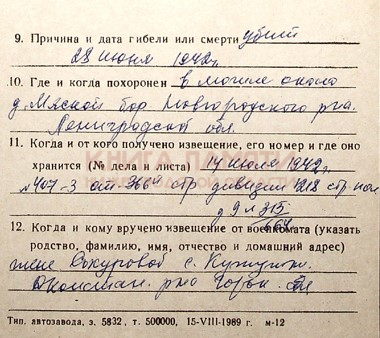 9. Причина и дата гибели или смерти убит
28 июня 1942г.
10. Где и когда похоронен в могиле около
д. Мясной бор Новгородского р-на.
Ленинградской обл.
11. Когда и от кого получено извещение, его номер и где оно
хранится (№ дела и листа) 14 июля 1942г.
№ 407-3 от 366й стр дивизии 1218 стр. пол
д 9 л 315
12. Когда и кому вручено извещение от военкомата (указать
родство, фамилию, имя, отчество и домашний адрес)
жене с.
р-на Горьк. обл
КНИГА ПАМЯТИ
Тип. автозавода, з. 5832, т. 500000, 15-VIII-1989 г. м-12